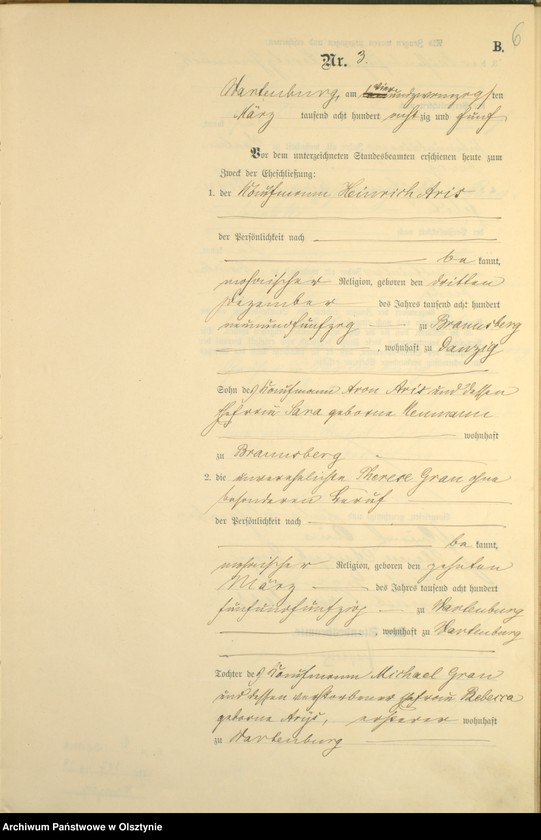 6
B.
Nr. 3.
Wartenburg, am vierundzwanzigsten
März tausend acht hundert achtzig und fünf
Vor dem unterzeichneten Standesbeamten erschienen heute zum
Zweck der Eheschließung:
1. der Kaufmann Heinrich Aris
der Persönlichkeit nach
be kannt,
mosaischer Religion, geboren den dritten
Dezember des Jahres tausend acht hundert
neunundfünfzig zu Braunsberg
, wohnhaft zu Danzig
Sohn des Kaufmann Aron Aris und dessen
Ehefrau Sara geborne Neumann
wohnhaft
zu Braunsberg
2. die unverehelichte Therese Grau ohne
besonderen Beruf
der Persönlichkeit nach
be kannt,
mosaischer Religion, geboren den zehnten
März des Jahres tausend acht hundert
fünfundfünfzig zu Wartenburg
, wohnhaft zu Wartenburg
Tochter des Kaufmann Michael Grau
und dessen verstorbener Ehefrau Rebecca
geborne Arys, ersterer wohnhaft
zu Wartenburg
Archiwum Państwowe w Olsztynie